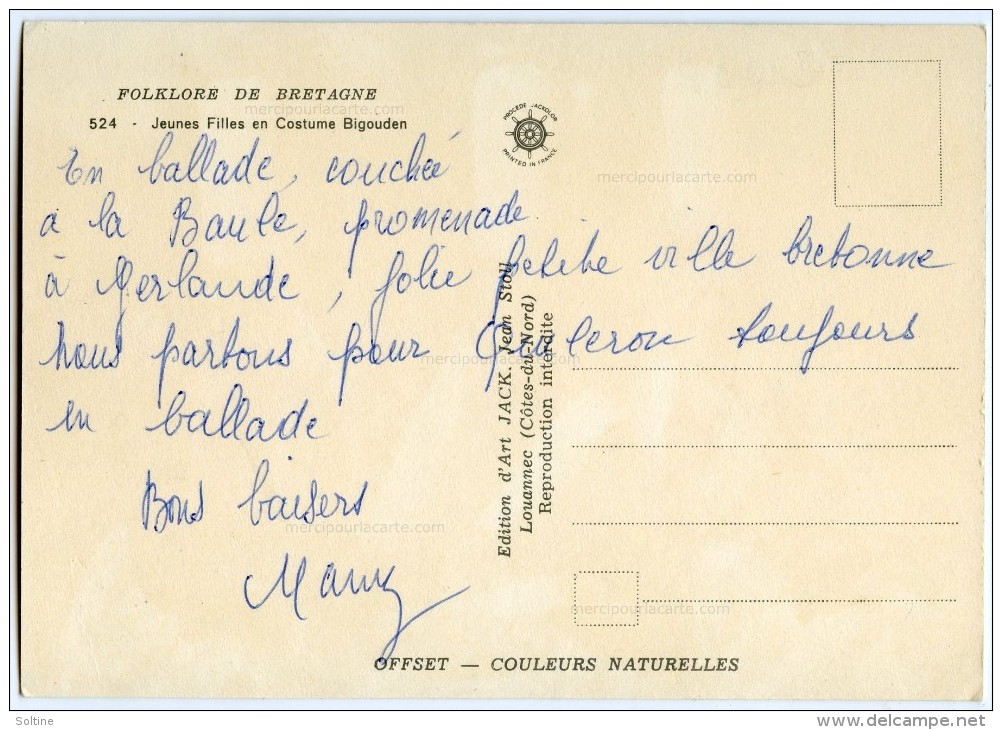 FOLKLORE DE BRETAGNE
524 - Jeunes Filles en Costume Bigouden
PROCEDE JACKOLOR
PRINTED IN FRANCE
En ballade, couchée
a la Baule, promenade
à Gerlande, jolie petite ville bretonne
Nous partons pour Quiberon toujours
en ballade
Bons baisers
Mamy
Edition d'Art JACK. Jean Stoll
Louannec (Côtes-du-Nord)
Reproduction interdite
OFFSET — COULEURS NATURELLES
mercipourlacarte.com
mercipourlacarte.com
mercipourlacarte.com
mercipourlacarte.com
mercipourlacarte.com
Soltine
www.delcampe.net